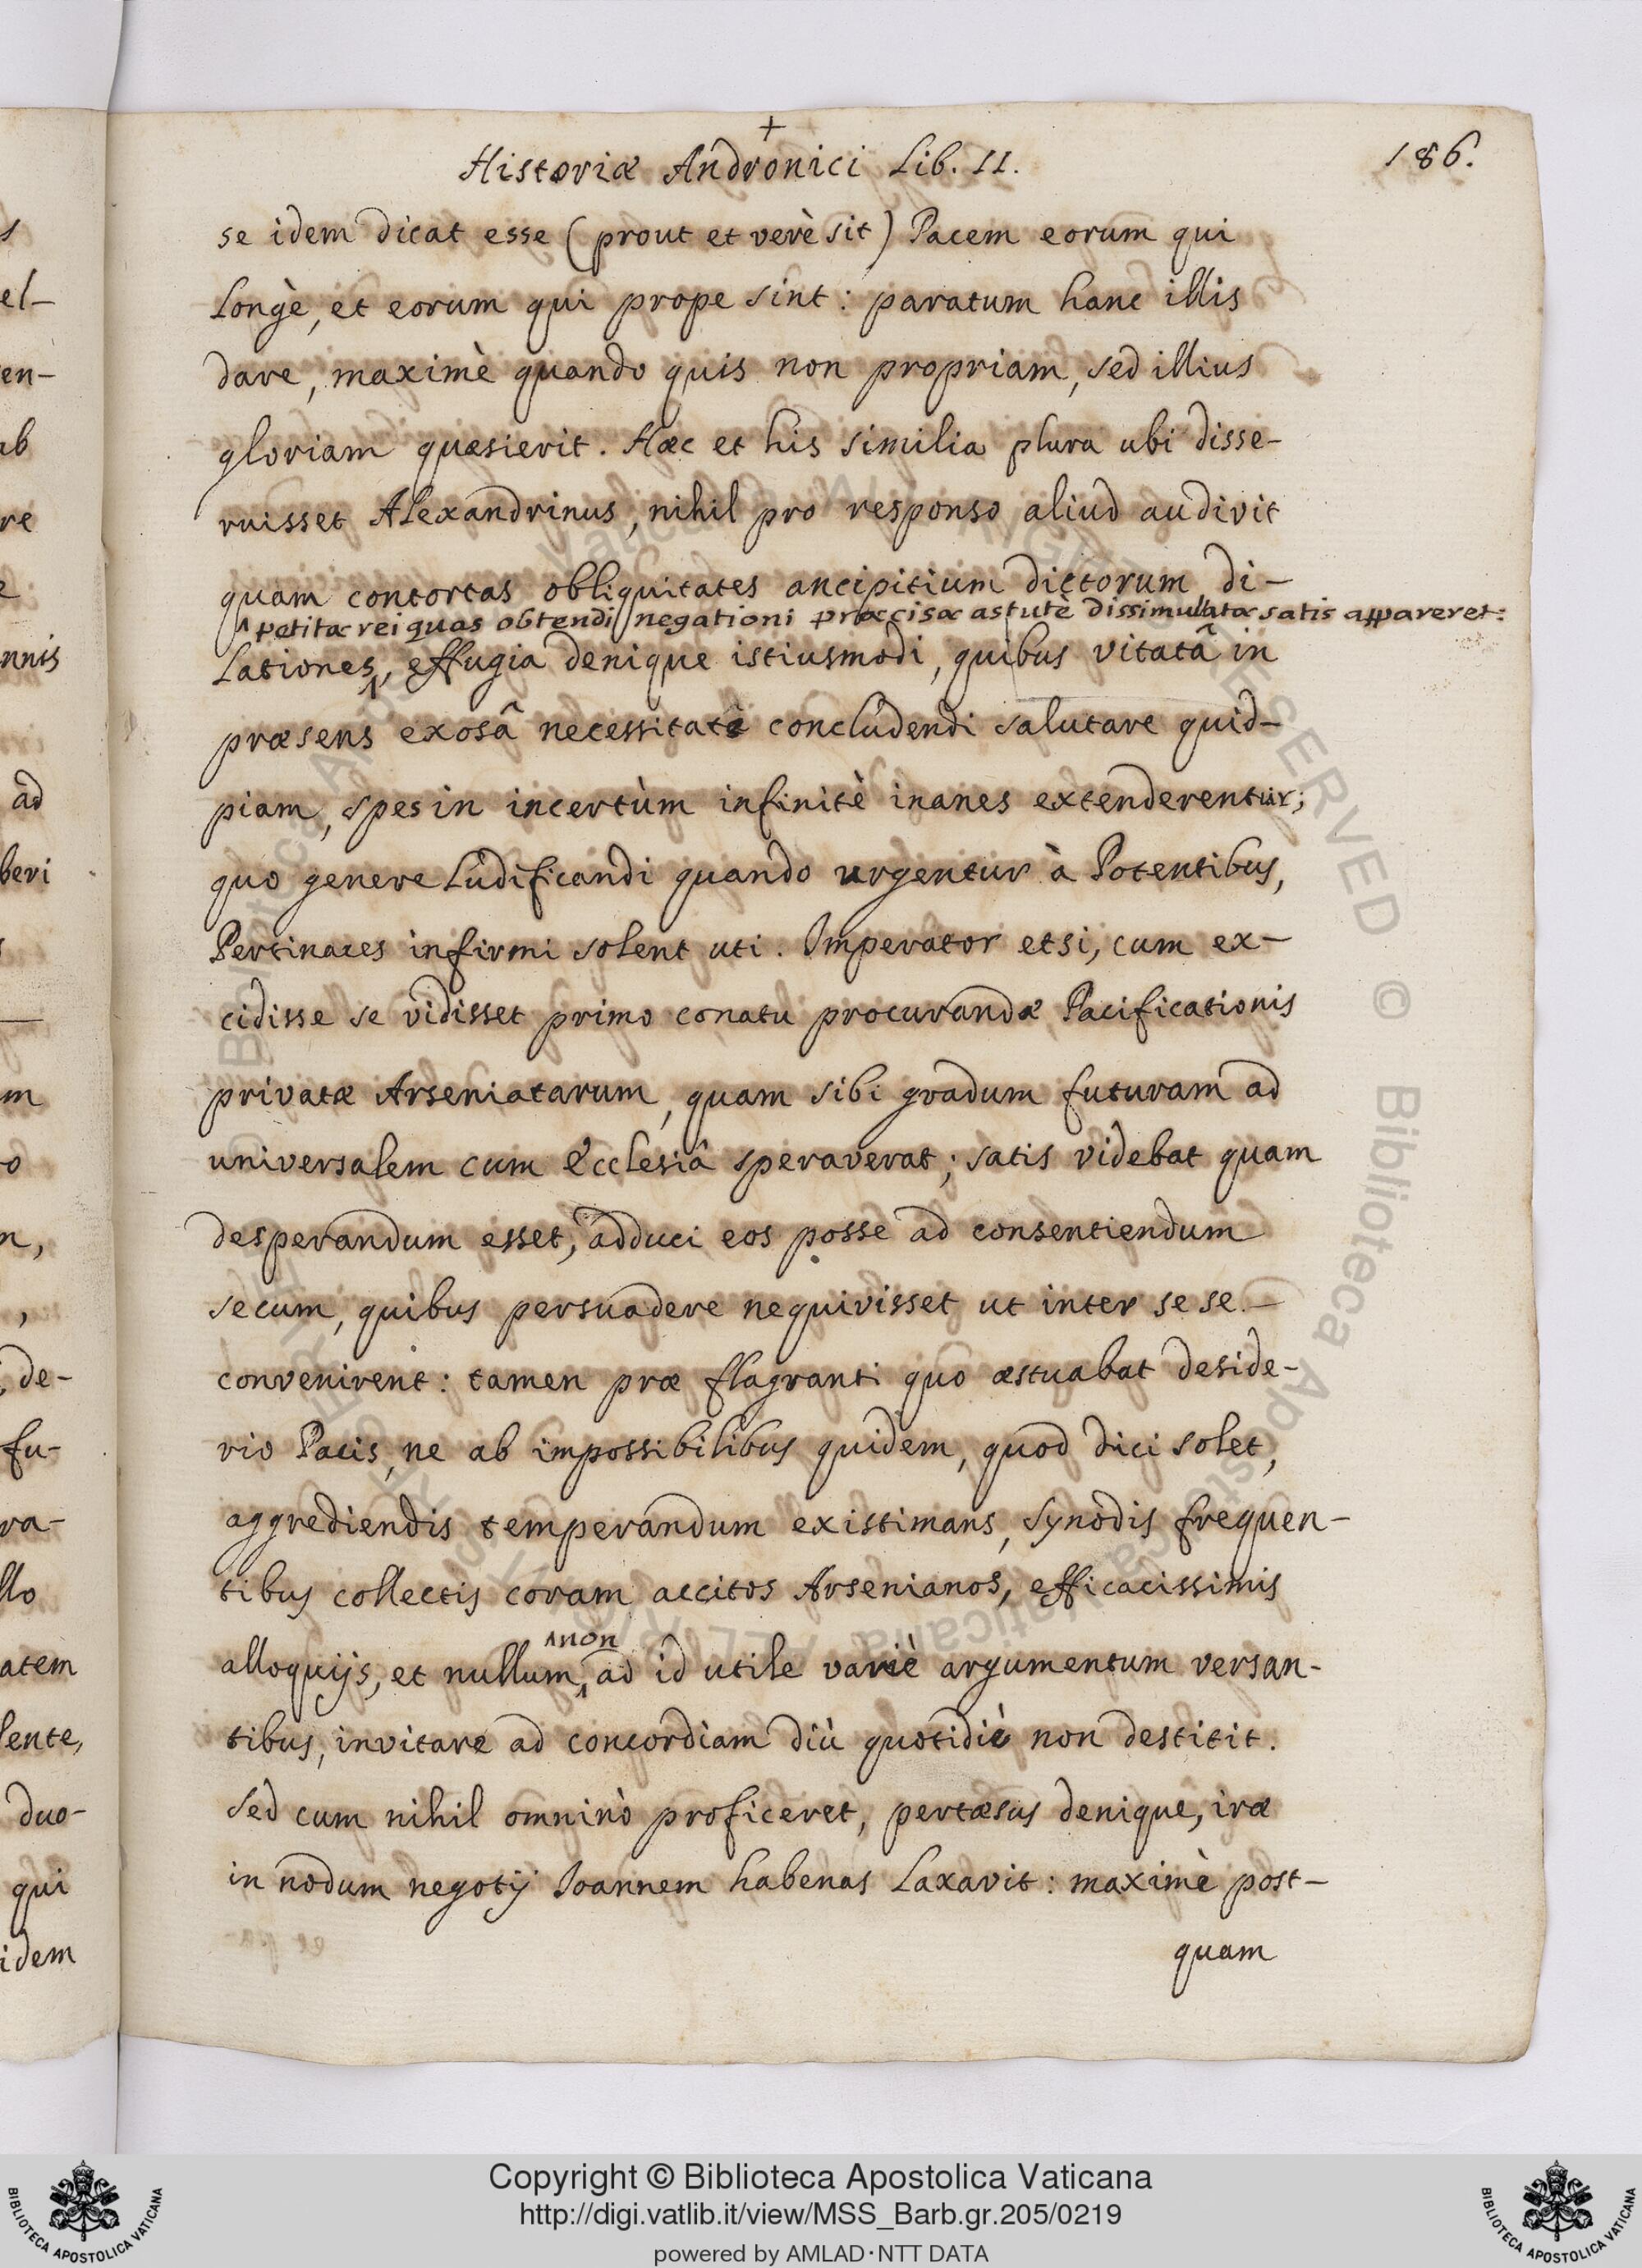 +
Historiæ Andronici Lib. II.
186.
se idem dicat esse (prout et verè sit) Pacem eorum qui
longè, et eorum qui prope sint: paratum hanc illis
dare, maximè quando quis non propriam, sed illius
gloriam quæsierit. Hæc et his similia plura ubi disse-
ruisset Alexandrinus, nihil pro responso aliud audivit
quam contortas obliquitates ancipitium dictorum di-
^ petitæ rei quas obtendi negationi præcisæ astutè dissimulatæ satis appareret:
lationes^, effugia denique istiusmodi, quibus vitatâ in
præsens exosâ necessitate concludendi salutare quid-
piam, spes in incertùm infinitè inanes extenderentur;
quo genere ludificandi quando urgentur à Potentibus,
Pertinaces infirmi solent uti. Imperator etsi, cum ex-
cidisse se vidisset primo conatu procurandæ Pacificationis
privatæ Arseniatarum, quam sibi gradum futuram ad
universalem cum Ecclesiâ speraverat; satis videbat quam
desperandum esset, adduci eos posse ad consentiendum
secum, quibus persuadere nequivisset ut inter se se
convenirent: tamen præ flagranti quo æstuabat deside-
rio Pacis, ne ab impossibilibus quidem, quod dici solet,
aggrediendis temperandum existimans, Synodis frequen-
tibus collectis coram accitos Arsenianos, efficacissimis
^non
alloquijs, et nullum^ ad id utile variè argumentum versan-
tibus, invitare ad concordiam diù quotidiè non destitit.
Sed cum nihil omninò proficeret, pertæsus denique, iræ
in nodum negotij Ioannem habenas laxavit: maximè post-
quam
s
el-
en-
ab
re
e
nnis
ad
beri
m
o
n,
,
, de-
fu-
ra-
llo
atem
lente,
duo-
qui
idem
Copyright © Biblioteca Apostolica Vaticana
http://digi.vatlib.it/view/MSS_Barb.gr.205/0219
powered by AMLAD·NTT DATA
BIBLIOTECA APOSTOLICA VATICANA
BIBLIOTECA APOSTOLICA VATICANA